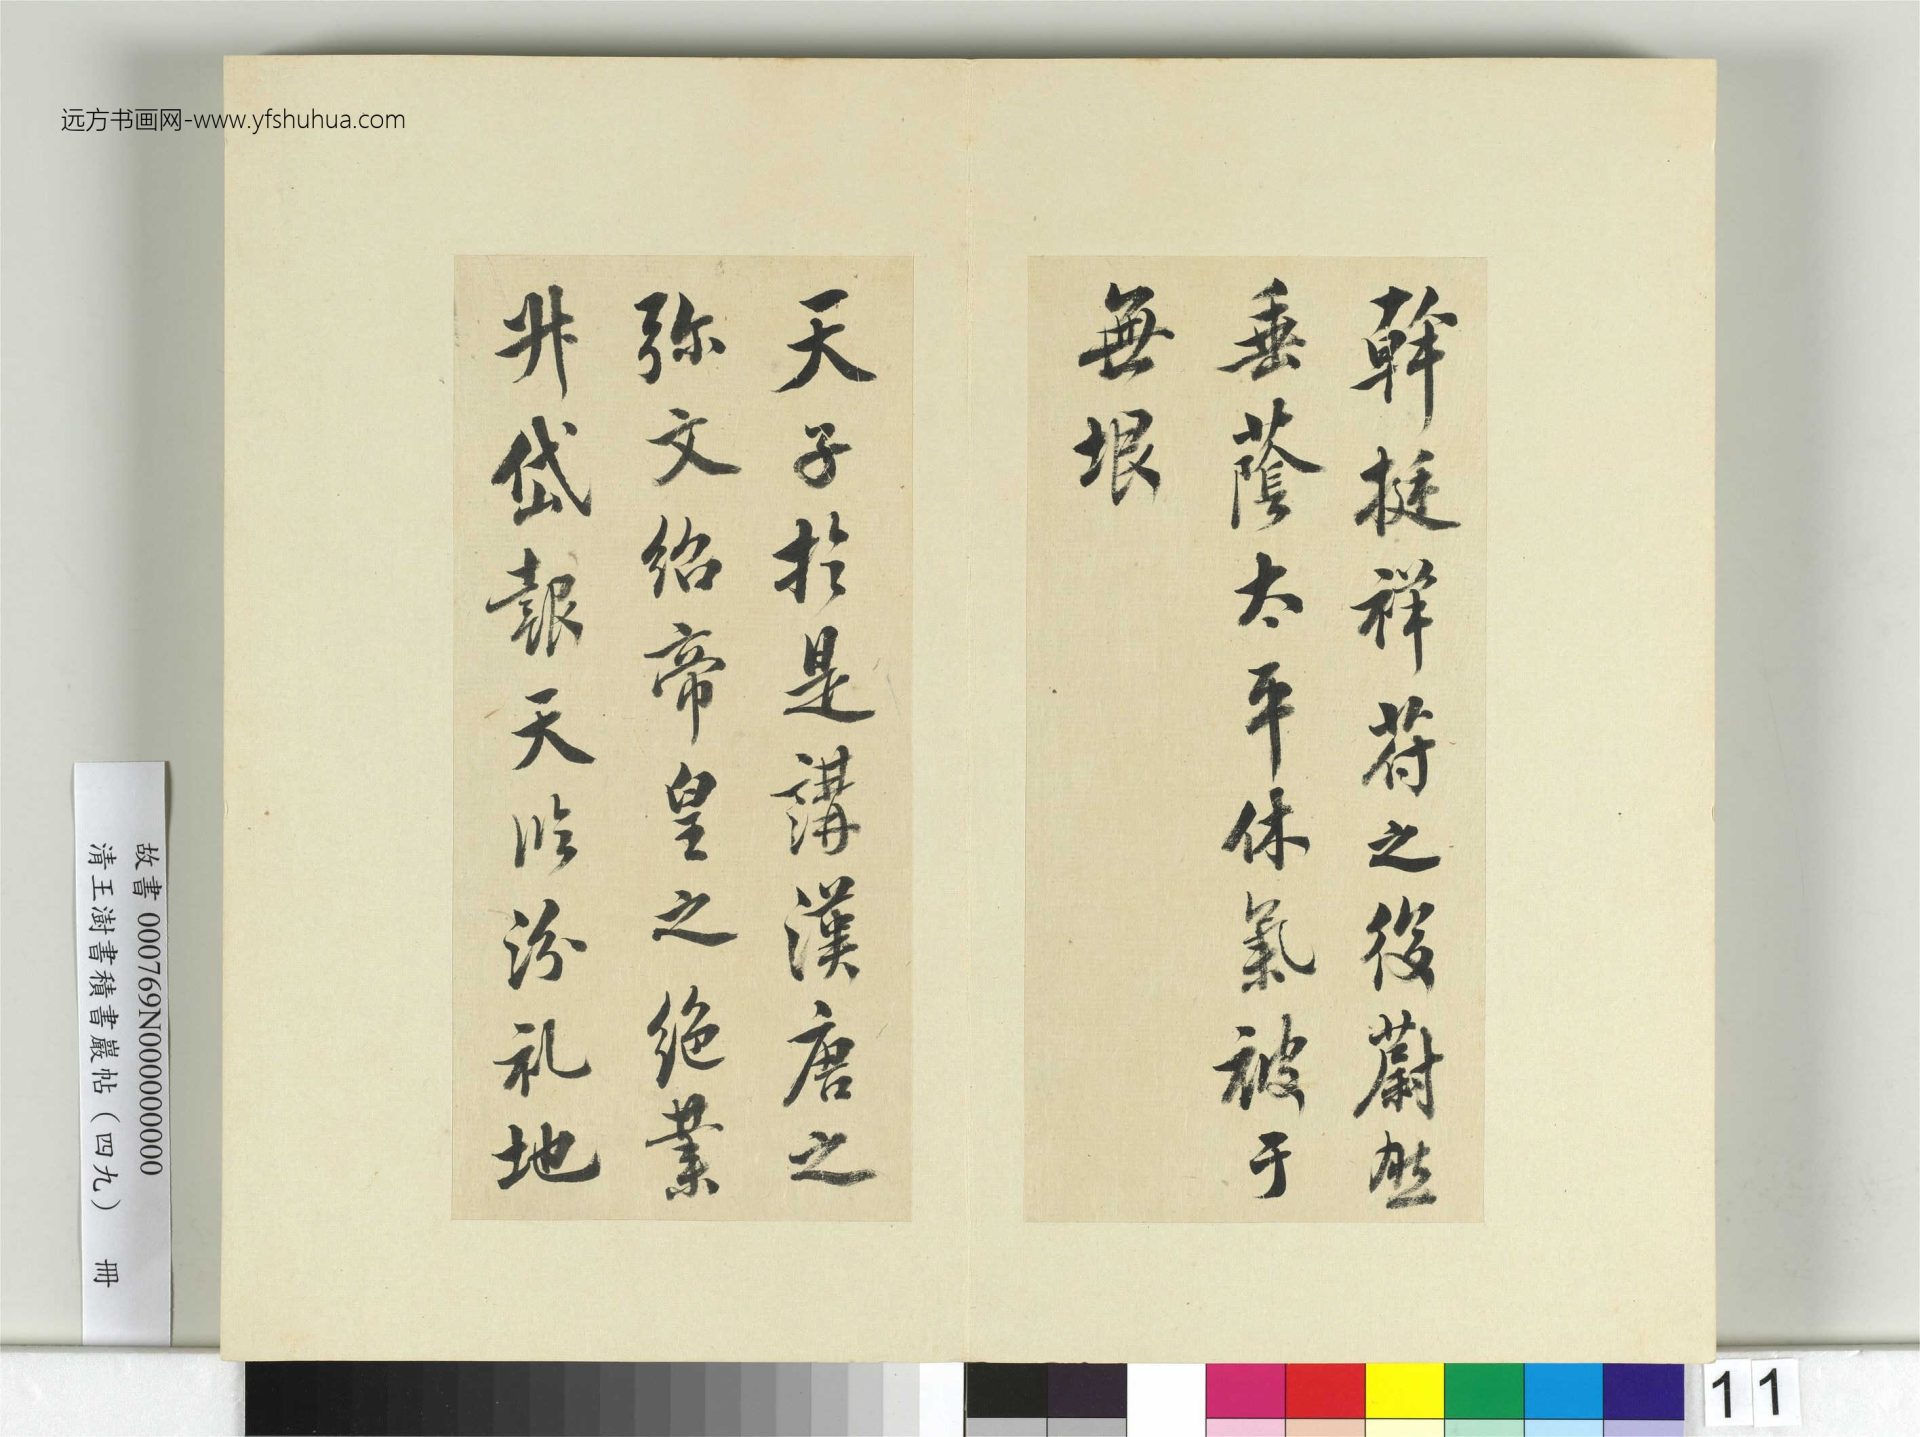 远方书画网-www.yfshuhua.com
幹挺祥符之後蔚然
垂蔭太平休氣被于
無垠
天子於是講漢唐之
弥文紹帝皇之絶業
升岱報天臨汾礼地
故書 000769N000000000
清王澍書積書巖帖（四九） 冊
11